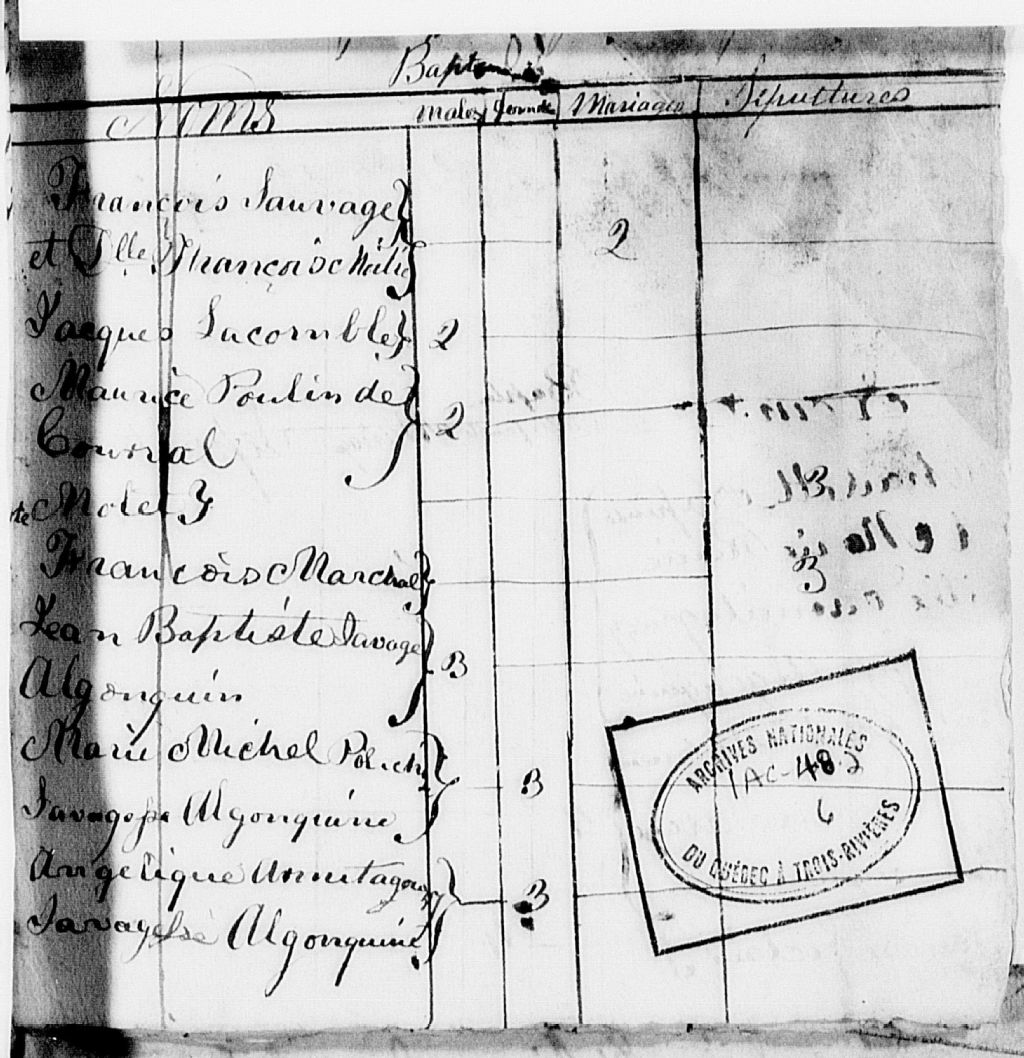 Baptem
Noms males femelle Mariages Sépultures
François Sauvage
et Dlle Françoise 2
Jacques Lacomble 2
Maurice Poulin de
Cournal 2
Motet 3
François Marchal 3
Jean Baptiste Savage
Algonquin 3
Marie Michel
Savagesse Algonquine 3
Angelique
Savagesse Algonquine 3
ARCHIVES NATIONALES
1AC-48-2
6
DU QUÉBEC À TROIS-RIVIÈRES